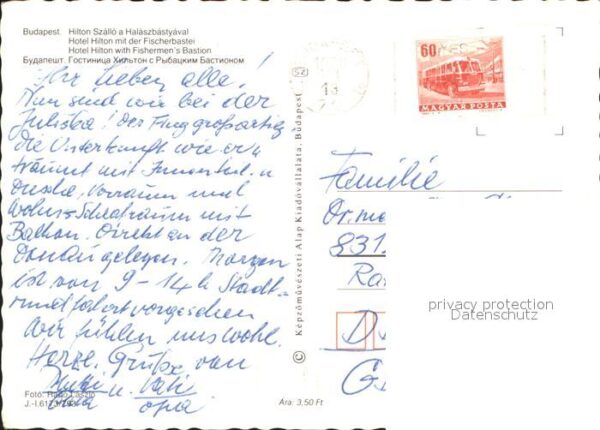 Budapest. Hilton Szálló a Halászbástyával
Hotel Hilton mit der Fischerbastei
Hotel Hilton with Fishermen's Bastion
Будапешт. Гостиница Хильтон с Рыбацким Бастионом
Ihr lieben alle!
Nun sind wir bei der
Juliska! Der Flug großartig
die Unterkunft wie er
träumt mit
Dusche, Vorraum und
Wohn-Schlafraum mit
Balkon. Direkt an der
Donau gelegen. Morgen
ist von 9-14 h Stadt-
rundfahrt vorgesehen
Wir fühlen uns wohl.
Herzl. Grüße von
u.
Opa
Foto:
Ára: 3,50 Ft
© Képzőművészeti Alap Kiadóvállalata, Budapest
SZ
13
60f
MAGYAR POSTA
Familie
Dr.
831
D
privacy protection
Datenschutz